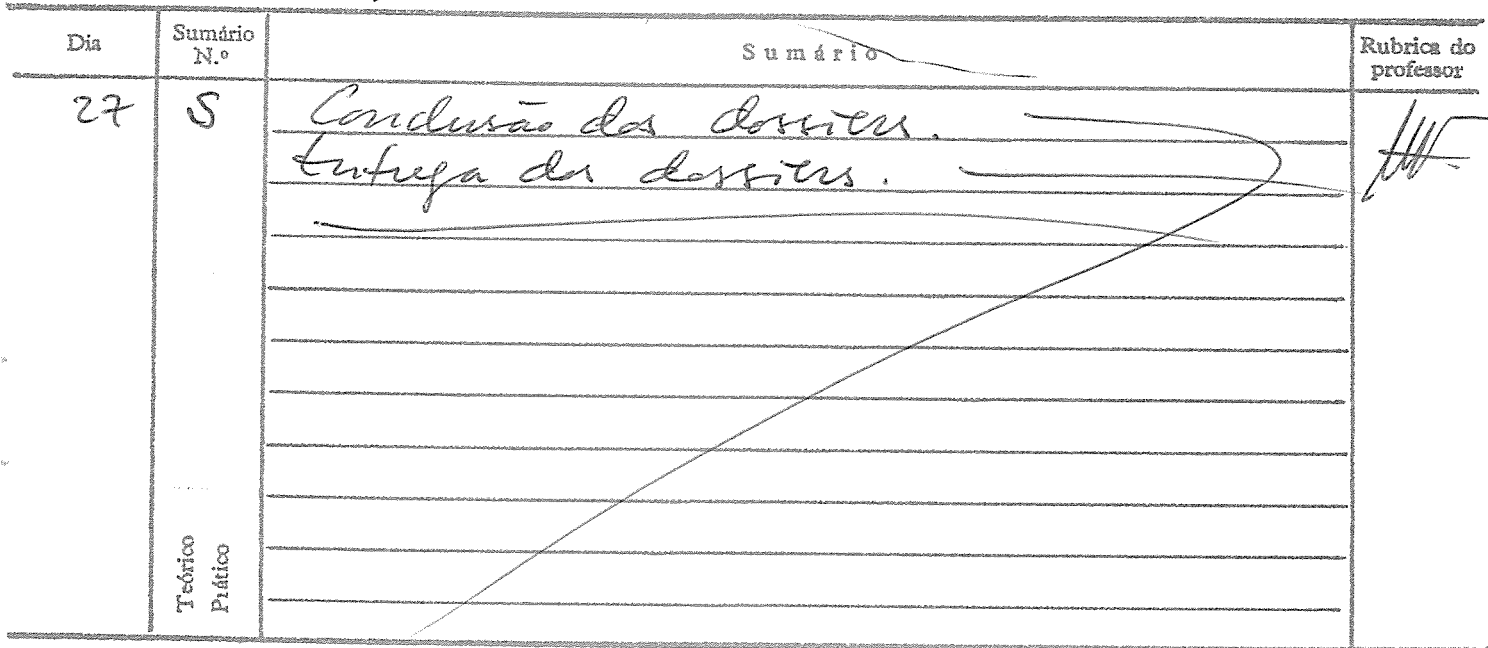 Dia Sumário N.º Sumário Rubrica do professor
27 S Conclusão dos dossiers.
Entrega dos dossiers.
Teórico
Prático